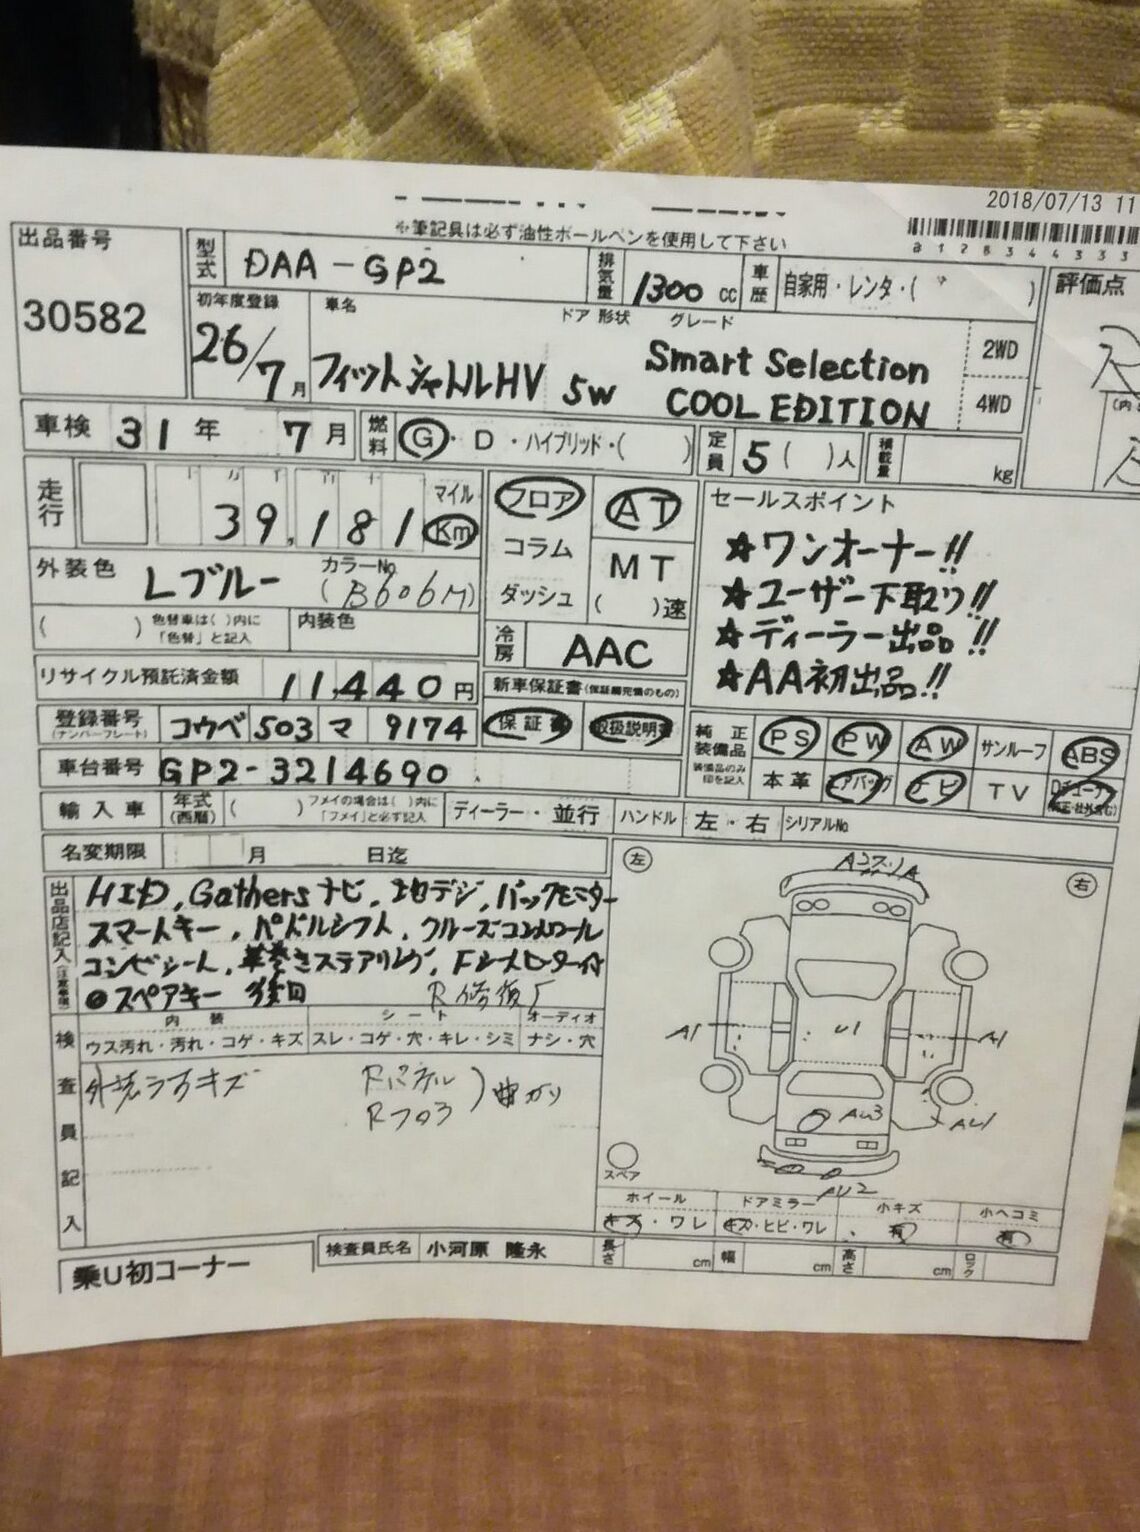 2018/07/13 11
※筆記具は必ず油性ボールペンを使用して下さい
a 1 2 8 3 4 4 3 3 3
出品番号
30582
型式 DAA-GP2 排気量 1300 cc 車歴 自家用・レンタ・( ) 評価点
初年度登録 車名 ドア 形状 グレード
26/7月 フィットシャトルHV 5W Smart Selection 2WD R
COOL EDITION 4WD (内
車検 31年 7月 燃料 G・D・ハイブリッド・( ) 定員 5( )人 積載量 kg
走行 39,181 マイル Km
フロア AT
コラム MT
ダッシュ ( )速
セールスポイント
☆ワンオーナー!!
☆ユーザー下取り!!
☆ディーラー出品!!
☆AA初出品!!
外装色 Lブルー カラーNo. (B606M)
( ) 色替車は( )内に「色替」と記入 内装色
冷房 AAC
リサイクル預託済金額 11,440円 新車保証書(保証書完備のもの)
登録番号 (ナンバープレート) コウベ 503 マ 9174 保証書 取扱説明書
純正装備品 PS PW AW サンルーフ ABS
装備品のみ印を記入 本革 エアバッグ ナビ TV
車台番号 GP2-3214690
輸入車 年式(西暦) ( ) フメイの場合は( )内に「フメイ」と必ず記入 ディーラー・並行 ハンドル 左・右 シリアルNo.
名変期限 月 日迄
左 右
出品店記入(注意事項)
HID, Gathersナビ, 地デジ, バックモニター
スマートキー, パドルシフト, クルーズコントロール
コンビシート, 革巻きステアリング, Fシートヒーター付
スペアキー 後日 R修復歴
検査員記入
内装 シート オーディオ
ウス汚れ・汚れ・コゲ・キズ スレ・コゲ・穴・キレ・シミ ナシ・穴
外装ラフキズ Rパネル
Rフロア )曲がり
A1 U1 A1
AU3 AU1
AU2
スペア
ホイール ドアミラー 小キズ 小ヘコミ
キズ・ワレ キズ・ヒビ・ワレ 有 有
乗U初コーナー 検査員氏名 小河原 隆永 長さ cm 幅 cm 高さ cm ロック